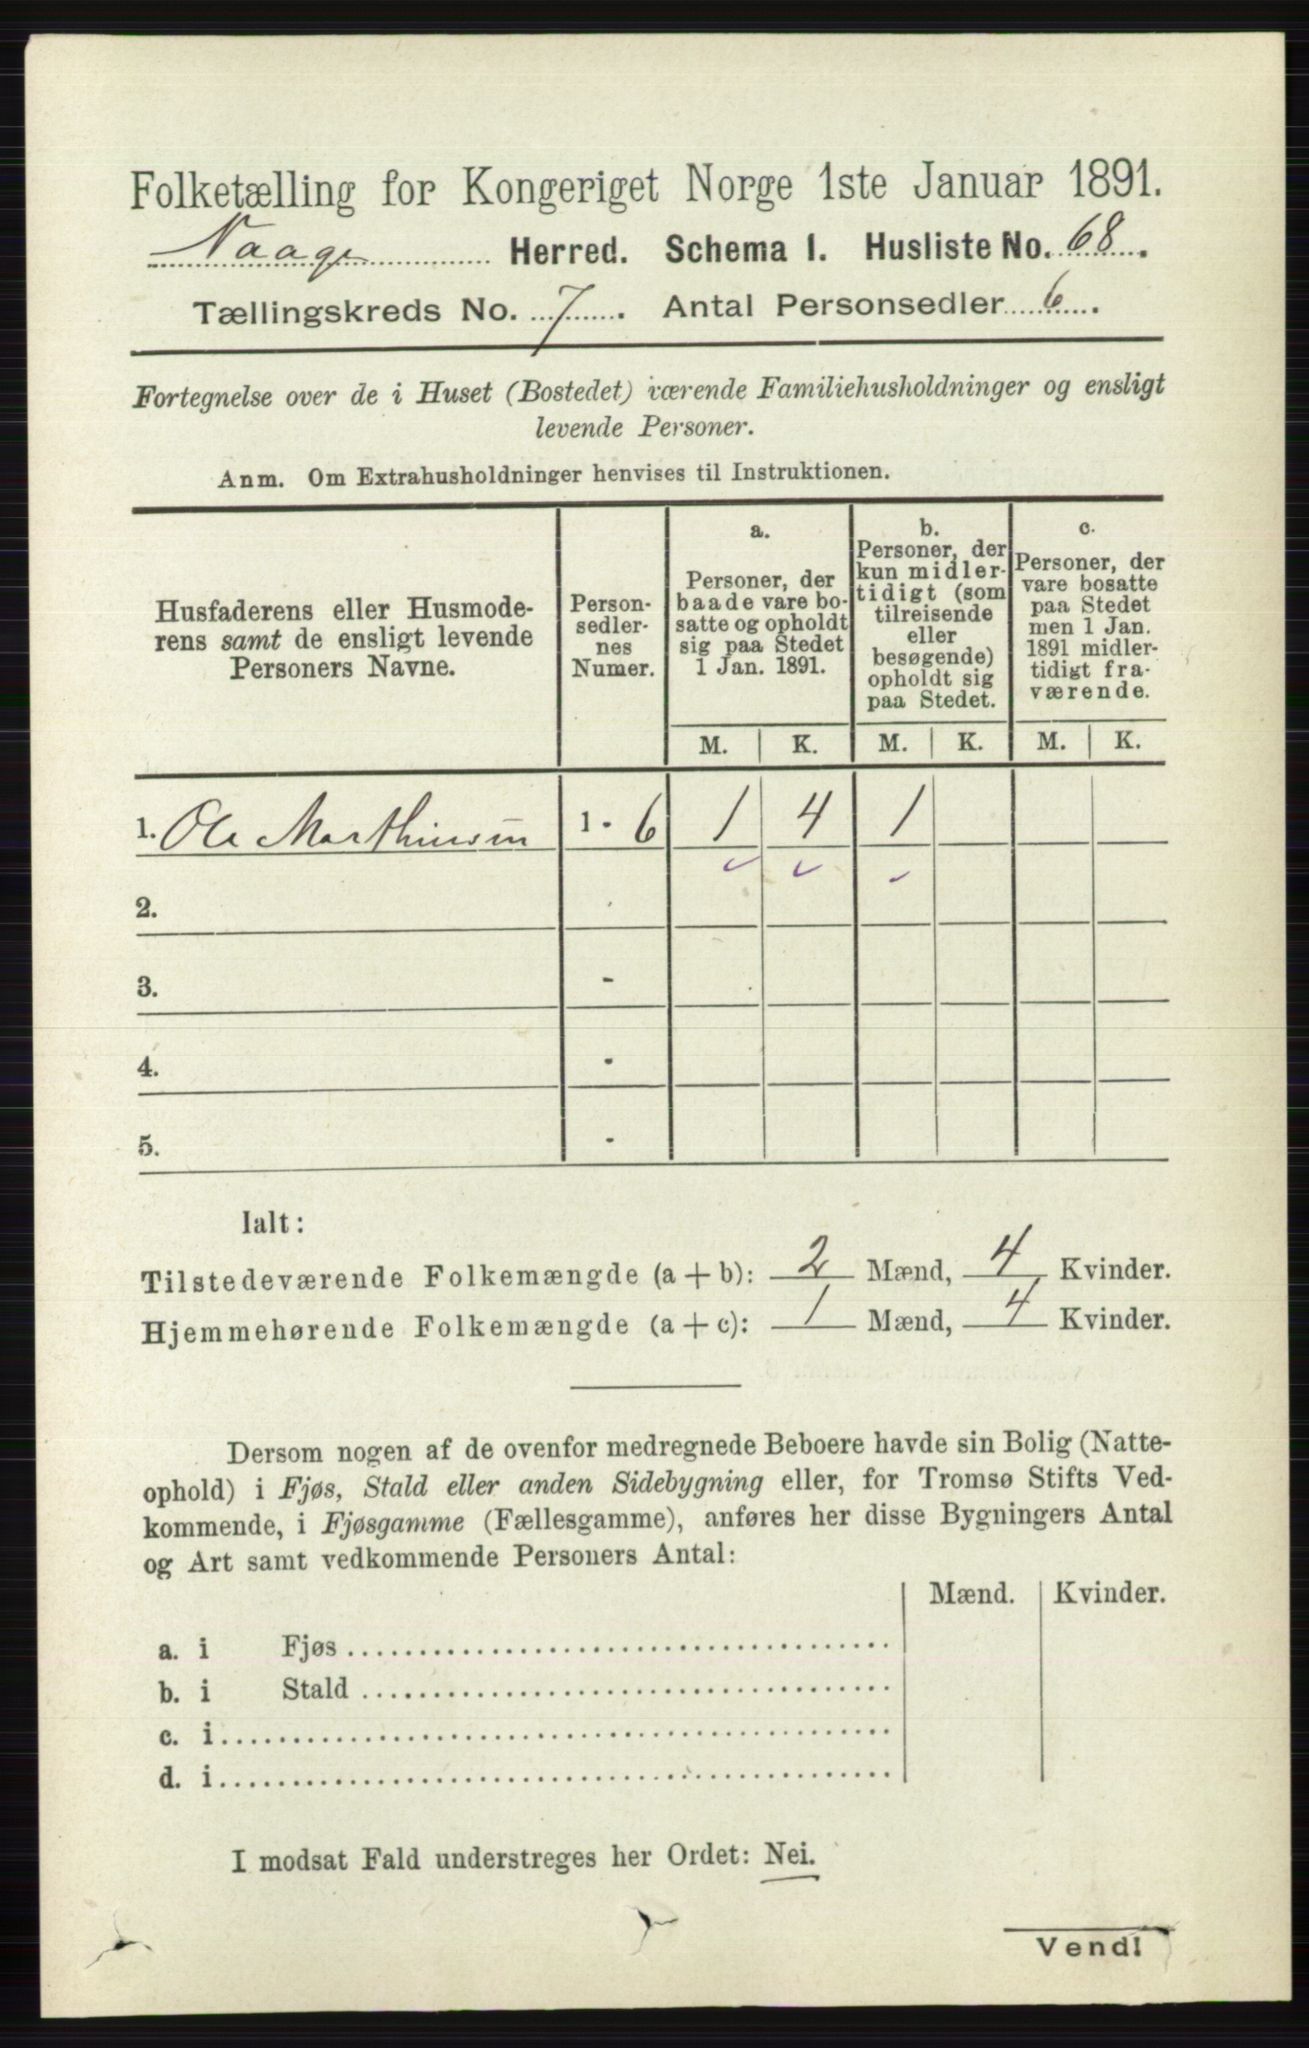 Folketælling for Kongeriget Norge 1ste Januar 1891.
Vaage Herred. Schema I. Husliste No. 68.
Tællingskreds No. 7. Antal Personsedler 6.
Fortegnelse over de i Huset (Bostedet) værende Familiehusholdninger og ensligt
levende Personer.
Anm. Om Extrahusholdninger henvises til Instruktionen.
Husfaderens eller Husmode-
rens samt de ensligt levende
Personers Navne.
Person-
sedler-
nes
Numer.
a.
Personer, der
baade vare bo-
satte og opholdt
sig paa Stedet
1 Jan. 1891.
b.
Personer, der
kun midler-
tidigt (som
tilreisende
eller
besøgende)
opholdt sig
paa Stedet.
c.
Personer, der
vare bosatte
paa Stedet
men 1 Jan.
1891 midler-
tidigt fra-
værende.
M. K. M. K. M. K.
1. Ole Marthinsen 1 - 6 1 4 1
2.
3. -
4. -
5. -
Ialt:
Tilstedeværende Folkemængde (a + b): 2 Mænd, 4 Kvinder.
Hjemmehørende Folkemængde (a + c): 1 Mænd, 4 Kvinder.
Dersom nogen af de ovenfor medregnede Beboere havde sin Bolig (Natte-
ophold) i Fjøs, Stald eller anden Sidebygning eller, for Tromsø Stifts Ved-
kommende, i Fjøsgamme (Fællesgamme), anføres her disse Bygningers Antal
og Art samt vedkommende Personers Antal:
Mænd. Kvinder.
a. i Fjøs
b. i Stald
c. i
d. i
I modsat Fald understreges her Ordet: Nei.
Vendl